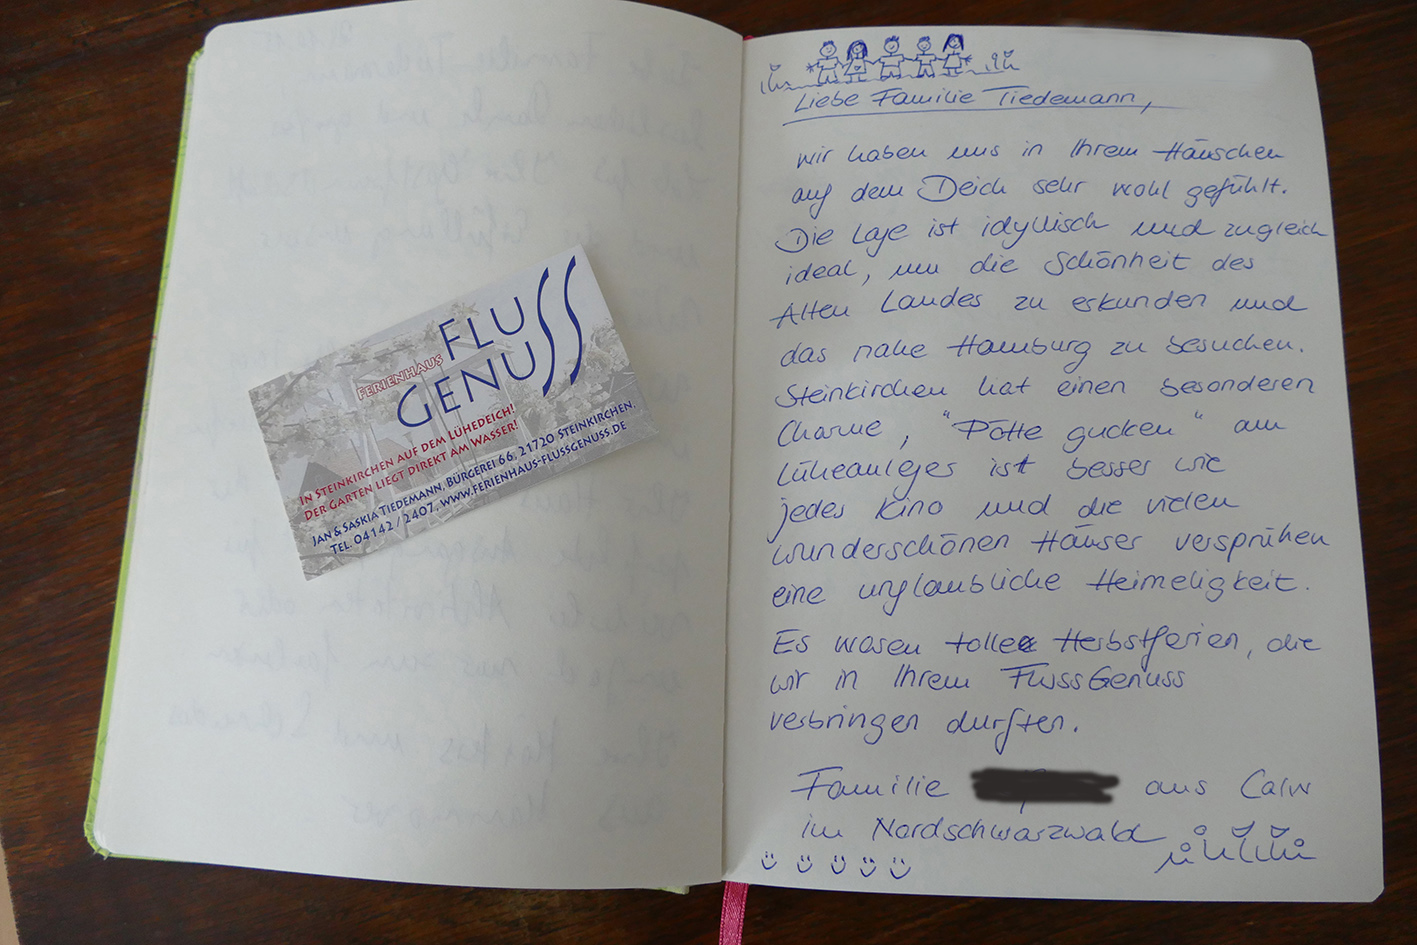 FERIENHAUS
FLUSS
GENUSS
IN STEINKIRCHEN AUF DEM LÜHEDEICH!
DER GARTEN LIEGT DIREKT AM WASSER!
JAN & SASKIA TIEDEMANN, BÜRGEREI 66, 21720 STEINKIRCHEN,
TEL. 04142 / 2407, WWW.FERIENHAUS-FLUSSGENUSS.DE
Liebe Familie Tiedemann,
wir haben uns in Ihrem Häuschen
auf dem Deich sehr wohl gefühlt.
Die Lage ist idyllisch und zugleich
ideal, um die Schönheit des
Alten Landes zu erkunden und
das nahe Hamburg zu besuchen.
Steinkirchen hat einen besonderen
Charme, "Pötte gucken" am
Lüheanleger ist besser wie
jedes Kino und die vielen
wunderschönen Häuser versprühen
eine unglaubliche Heimeligkeit.
Es waren tolle Herbstferien, die
wir in Ihrem FlussGenuss
verbringen durften.
Familie aus Calw
im Nordschwarzwald